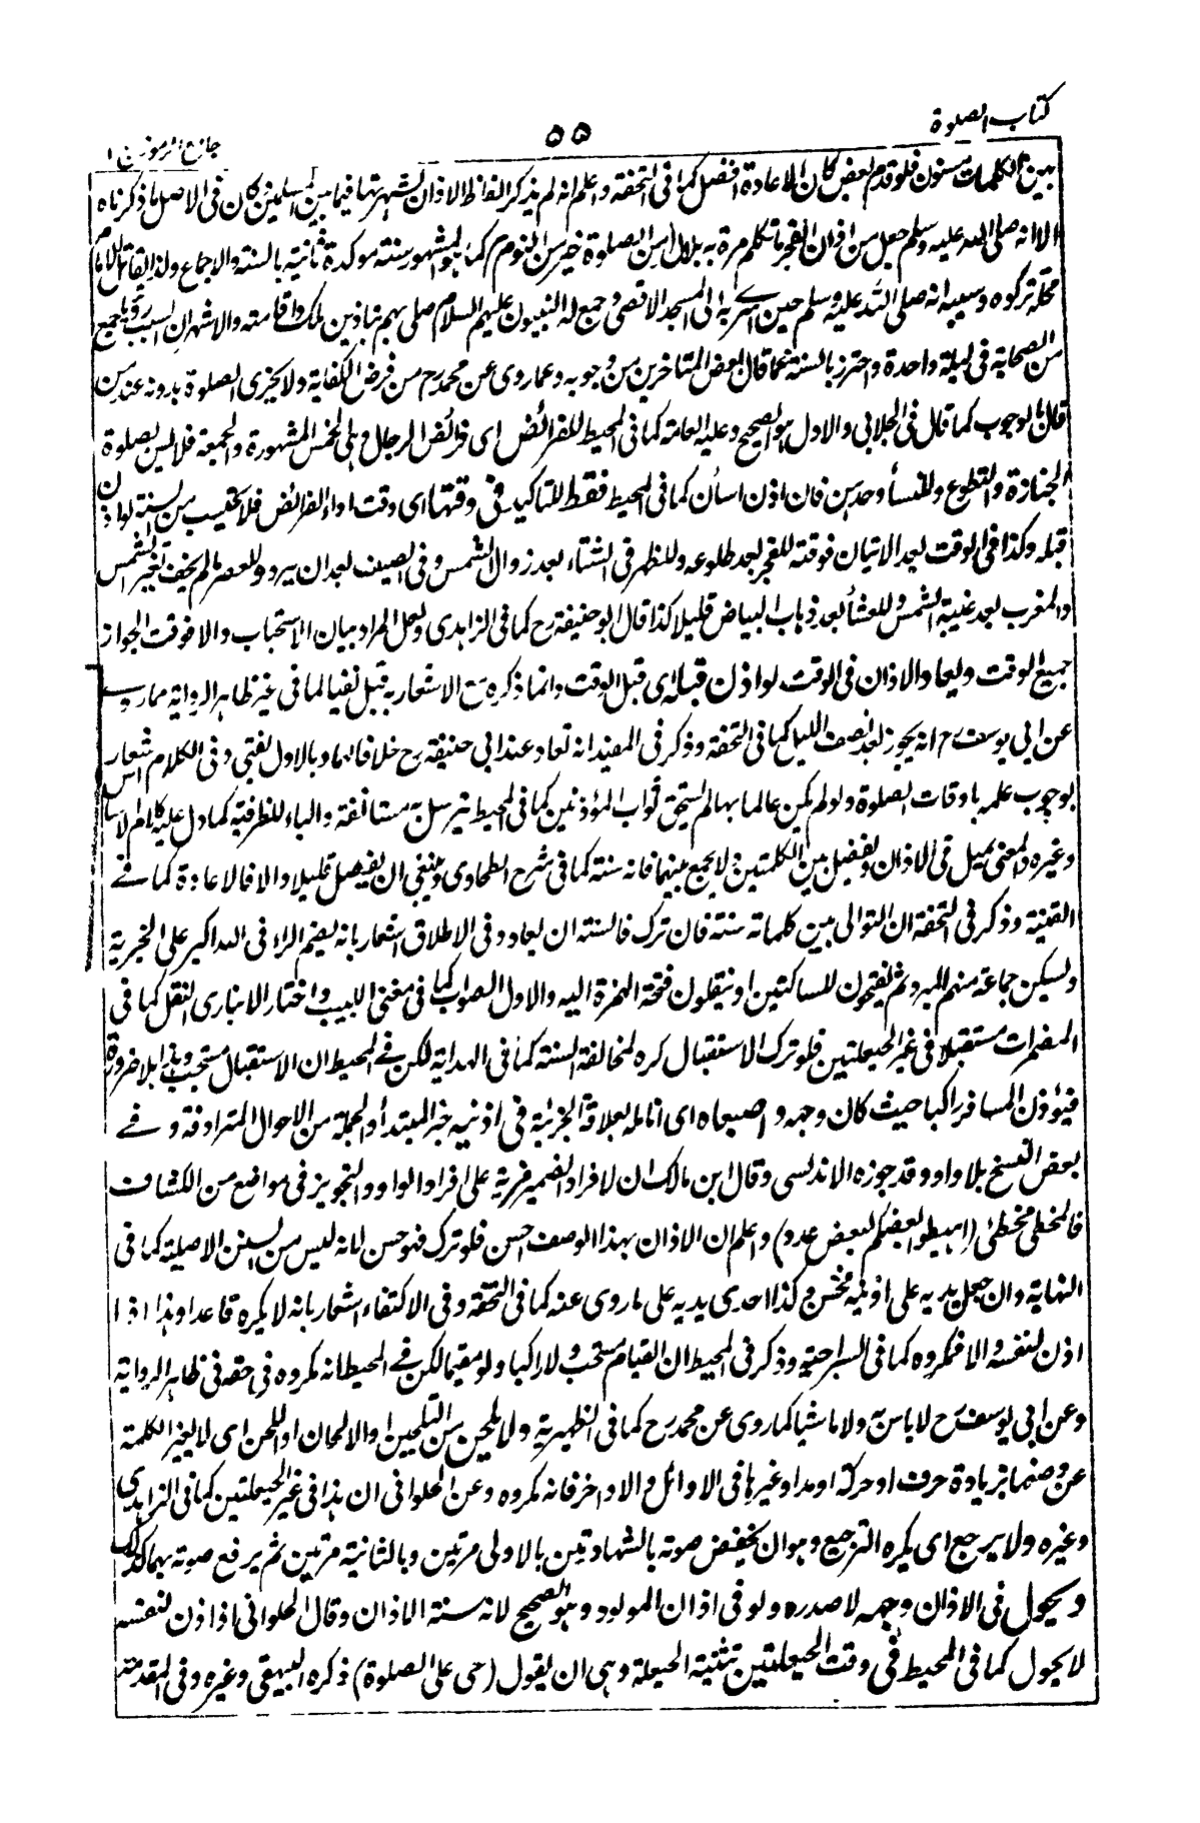 كتاب الصلوة
٥٥
جامع الرموز ج ١
بين الكلمات مسنون فلو قدم بعض كان الاعادة افضل كما فى التحفة واعلم انه لم يذكر الفاظ الاذان لشهرتها فيما بين المسلمين كان فى الاصل ما ذكرناه
الا انه صلى الله عليه وسلم جعل من اذان الفجر ما تكلم مرة به بلال من الصلوة خير من النوم كما هو المشهور سنة موكدة ثانية بالسنة والاجماع ولذا يقاتل الامام
محلة تركوه وسببه انه صلى الله عليه وسلم حين اسرى به الى المسجد الاقصى وجمع له النبيون عليهم السلام صلى بهم بتاذين ملك واقامته والاشهر ان السبب رؤيا جميع
من الصحابة فى ليلة واحدة واحترز بالسنة عما قال بعض المتاخرين من وجوبه وعما روى عن محمد رح من فرض الكفاية ولا يجزى الصلوة بدونه عند من
قال بالوجوب كما قال فى الجلابى والاول هو الصحيح وعليه العامة كما فى المحيط للفرائض اى فرائض الرجال وهى الخمس المشهورة والجمعة فليس لصلوة
الجنازة والتطوع وللنسأ وحدهن فان اذن اسأن كما فى المحيط فقط للتاكيد فى وقتها اى وقت اداء الفرائض فلا يحتسب من السنة لو اذن
قبله وكذا فى الوقت بعد الاتيان فوقته للفجر بعد طلوعه وللظهر فى الشتاء بعد زوال الشمس وفى الصيف بعد ان يبرد وللعصر ما لم يخف تغير الشمس
والمغرب بعد غيبة الشمس وللعشأ بعد ذهاب البياض قليلا كذا قال ابو حنيفة رح كما فى الزاهدى ولعل المراد بيان الاستحباب والا فوقت الجواز
جميع الوقت ويعاد الاذان فى الوقت لو اذن قبله اى قبل الوقت وانما ذكره مع الاشعار به قبل نفيا لما فى غير ظاهر الرواية مما روى
عن ابى يوسف رح انه يجوز بعد نصف الليل كما فى التحفة وذكر فى المفيد انه تعاد عند ابى حنيفة رح خلافا لهما وبالاول يفتى وفى الكلام اشعار
بوجوب علمه باوقات الصلوة ولو لم يكن عالما بها لم يستحق ثواب المؤذنين كما فى المحيط يترسل به مستانفة والباء للظرفية كما دل عليه كلام الاساس
وغيره والمعنى يميل فى الاذان ويفصل بين الكلمتين ولا يجمع بينهما فانه سنة كما فى شرح الطحاوى وينبغى ان يفصل قليلا والا فالاعادة كما فى
القنية وذكر فى التحفة ان التوالى بين كلماته سنة فان ترك فالسنة ان يعاد وفى الاطلاق اشعار بانه يضم الراء فى الله اكبر على الخبرية
ويسكن جماعة منهم المبرد ثم يفتحون للساكنين او ينقلون فتحة الهمزة اليه والاول الصواب كما فى مغنى اللبيب واختار الانبارى النقل كما فى
المضمرات مستقبلا فى غير الحيعلتين فلو ترك الاستقبال كره لمخالفة السنة كما فى الهداية لكن فى المحيط ان الاستقبال مستحب وهذا بلا ضرورة
فيؤذن المسافر راكبا حيث كان وجهه واصبعاه اى انامله بعلاقة الجزئية فى اذنيه خبر المبتدأ والجملة من الاحوال المترادفة وفى
بعض النسخ بلا واو وقد جوزه الاندلسى وقال ابن مالك ان لافراد الضمير مزية على افراد الواو والتجويز فى مواضع من الكشاف
فالمخطى مخطئ (اهبطوا بعضكم لبعض عدو) واعلم ان الاذان بهذا الوصف احسن فلو ترك فهو حسن لانه ليس من السنن الاصلية كما فى
النهاية وان جعل يديه على اذنيه فحسن وكذا احدى يديه على ما روى عنه كما فى التحفة وفى الاكتفاء اشعار بانه لا يكره قاعدا وهذا اذا
اذن لنفسه والا فمكروه كما فى السراجية وذكر فى المحيط ان القيام مستحب ولا راكبا ولو مقيما لكن فى المحيط انه مكروه فى حقه فى ظاهر الرواية
وعن ابى يوسف رح لا باس به ولا ماشيا كما روى عن محمد رح كما فى الظهيرية ولا يلحن من التلحين والالحان او اللحن اى لا يغير الكلمة
عن وضعها بزيادة حرف او حركة او مد او غيرها فى الاوائل والاواخر فانه مكروه وعن الحلوانى ان هذا فى غير الحيعلتين كما فى الزاهدى
وغيره ولا يرجع اى يكره الترجيع وهو ان يخفض صوته بالشهادتين بالاولى مرتين وبالثانية مرتين ثم يرفع صوته بهما كذلك
ويحول فى الاذان وجهه لا صدره ولو فى اذان المولود وهو الصحيح لانه سنة الاذان وقال الحلوانى اذا اذن لنفسه
لا يحول كما فى المحيط فى وقت الحيعلتين تثنية الحيعلة وهى ان يقول (حى على الصلوة) ذكره البيهقى وغيره وفى المقدمة